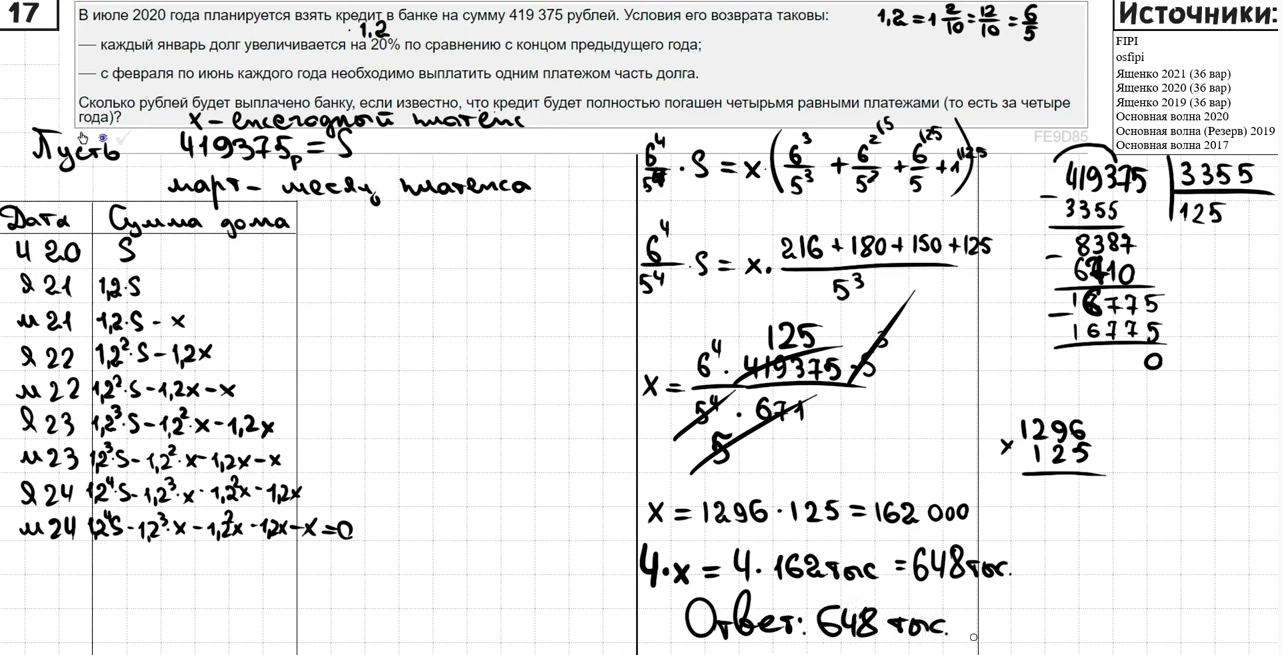 17
В июле 2020 года планируется взять кредит в банке на сумму 419 375 рублей. Условия его возврата таковы:
1,2 = 1 2/10 = 12/10 = 6/5
1,2
— каждый январь долг увеличивается на 20% по сравнению с концом предыдущего года;
— с февраля по июнь каждого года необходимо выплатить одним платежом часть долга.
Сколько рублей будет выплачено банку, если известно, что кредит будет полностью погашен четырьмя равными платежами (то есть за четыре
года)?
FE9D85
Источники:
FIPI
osfipi
Ященко 2021 (36 вар)
Ященко 2020 (36 вар)
Ященко 2019 (36 вар)
Основная волна 2020
Основная волна (Резерв) 2019
Основная волна 2017
x – ежегодный платеж
Пусть 419375р = S
март – месяц платежа
Дата Сумма долга
И 20 S
Я 21 1,2·S
М 21 1,2·S - x
Я 22 1,2²·S - 1,2x
М 22 1,2²·S - 1,2x - x
Я 23 1,2³·S - 1,2²·x - 1,2x
М 23 1,2³·S - 1,2²·x - 1,2x - x
Я 24 1,2⁴·S - 1,2³·x - 1,2²x - 1,2x
М 24 1,2⁴S - 1,2³·x - 1,2²x - 1,2x - x = 0
6⁴/5⁴ · S = x·(6³/5³ + 6²/5² + 6/5 + 1)
15 125 125
6⁴/5⁴ · S = x · (216 + 180 + 150 + 125)/5³
125
x = 6⁴ · 419375 · 5³/5⁴ · 671
5
x = 1296 · 125 = 162 000
4·x = 4 · 162 тыс = 648 тыс.
Ответ: 648 тыс.
419375 3355
- 3355 125
- 8387
6710
- 16775
16775
0
× 1296
125